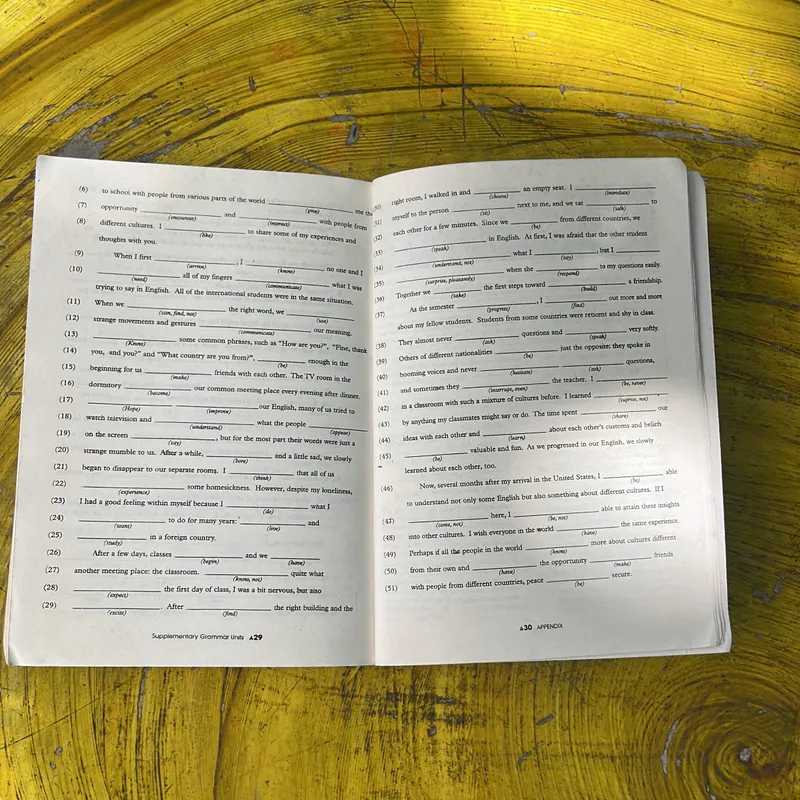 (6) to school with people from various parts of the world ____ one the
(give)
(7) opportunity ____ and ____ with people from
(encounter) (interact)
(8) different cultures. I ____ to share some of my experiences and
(like)
thoughts with you.
(9) When I first ____, I ____ no one and I
(arrive) (know)
(10) ____ all of my fingers ____ what I was
(need) (communicate)
trying to say in English. All of the international students were in the same situation.
(11) When we ____ the right word, we ____
(can, find, not) (use)
(12) strange movements and gestures ____ our meaning.
(communicate)
(13) ____ some common phrases, such as "How are you?", "Fine, thank
(Know)
(14) you, and you?" and "What country are you from?", ____ enough in the
(be)
(15) beginning for us ____ friends with each other. The TV room in the
(make)
(16) dormitory ____ our common meeting place every evening after dinner.
(become)
(17) ____ our English, many of us tried to
(Hope) (improve)
(18) watch television and ____ what the people ____
(understand) (appear)
(19) on the screen ____, but for the most part their words were just a
(say)
(20) strange mumble to us. After a while, ____ and a little sad, we slowly
(bore)
(21) began to disappear to our separate rooms. I ____ that all of us
(think)
(22) ____ some homesickness. However, despite my loneliness,
(experience)
(23) I had a good feeling within myself because I ____ what I
(do)
(24) ____ to do for many years: ____ and
(want) (live)
(25) ____ in a foreign country.
(study)
(26) After a few days, classes ____ and we ____
(begin) (have)
(27) another meeting place: the classroom. ____ quite what
(know, not)
(28) ____ the first day of class, I was a bit nervous, but also
(expect)
(29) ____. After ____ the right building and the
(excite) (find)
Supplementary Grammar Units A29
right room, I walked in and ____ an empty seat. I ____
(choose) (introduce)
myself to the person ____ next to me, and we sat ____ to
(sit) (talk)
(32) each other for a few minutes. Since we ____ from different countries, we
(be)
(33) ____ in English. At first, I was afraid that the other student
(speak)
(34) ____ what I ____, but I ____
(understand, not) (say)
(35) ____ when she ____ to my questions easily.
(surprise, pleasantly) (respond)
(36) Together we ____ the first steps toward ____ a friendship.
(take) (build)
(37) As the semester ____, I ____ out more and more
(progress) (find)
about my fellow students. Students from some countries were reticent and shy in class.
(38) They almost never ____ questions and ____ very softly.
(ask) (speak)
(39) Others of different nationalities ____ just the opposite: they spoke in
(be)
(40) booming voices and never ____ questions,
(hesitate) (ask)
(41) and sometimes they ____ the teacher. I ____
(interrupt, even) (be, never)
(42) in a classroom with such a mixture of cultures before. I learned ____
(surprise, not)
(43) by anything my classmates might say or do. The time spent ____ our
(share)
(44) ideas with each other and ____ about each other's customs and beliefs
(learn)
(45) ____ valuable and fun. As we progressed in our English, we slowly
(be)
learned about each other, too.
(46) Now, several months after my arrival in the United States, I ____ able
(be)
to understand not only some English but also something about different cultures. If I
(47) ____ here, I ____ able to attain these insights
(come, not) (be, not)
(48) into other cultures. I wish everyone in the world ____ the same experience.
(have)
(49) Perhaps if all the people in the world ____ more about cultures different
(know)
(50) from their own and ____ the opportunity ____ friends
(have) (make)
(51) with people from different countries, peace ____ secure.
(be)
A30 APPENDIX